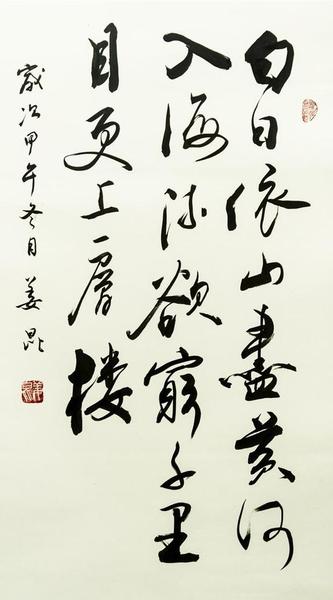 白日依山盡黄河
入海流欲窮千里
目更上一層楼
歲次甲午冬月姜昆